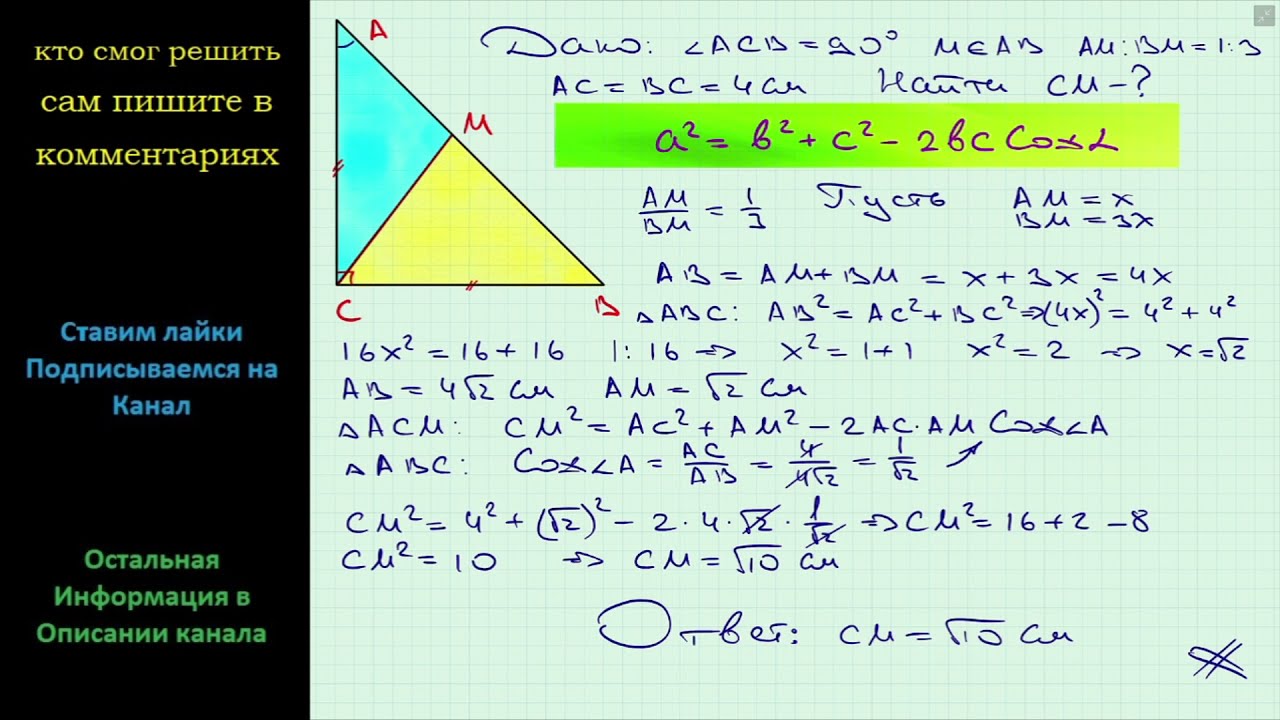 кто смог решить
сам пишите в
комментариях
Ставим лайки
Подписываемся на
Канал
Остальная
Информация в
Описании канала
A
M
C
B
Дано: ∠ACB = 90° M∈AB AM:BM = 1:3
AC = BC = 4 см Найти CM - ?
a² = b² + c² - 2bc Cos α
AM/BM = 1/3 Пусть AM = x
BM = 3x
AB = AM + BM = x + 3x = 4x
△ABC: AB² = AC² + BC² => (4x)² = 4² + 4²
16x² = 16 + 16 |: 16 => x² = 1 + 1 x² = 2 => x = √2
AB = 4√2 см AM = √2 см
△ACM: CM² = AC² + AM² - 2AC·AM Cos∠A
△ABC: Cos∠A = AC/AB = 4/4√2 = 1/√2
CM² = 4² + (√2)² - 2·4·√2·1/√2 => CM² = 16 + 2 - 8
CM² = 10 => CM = √10 см
Ответ: CM = √10 см